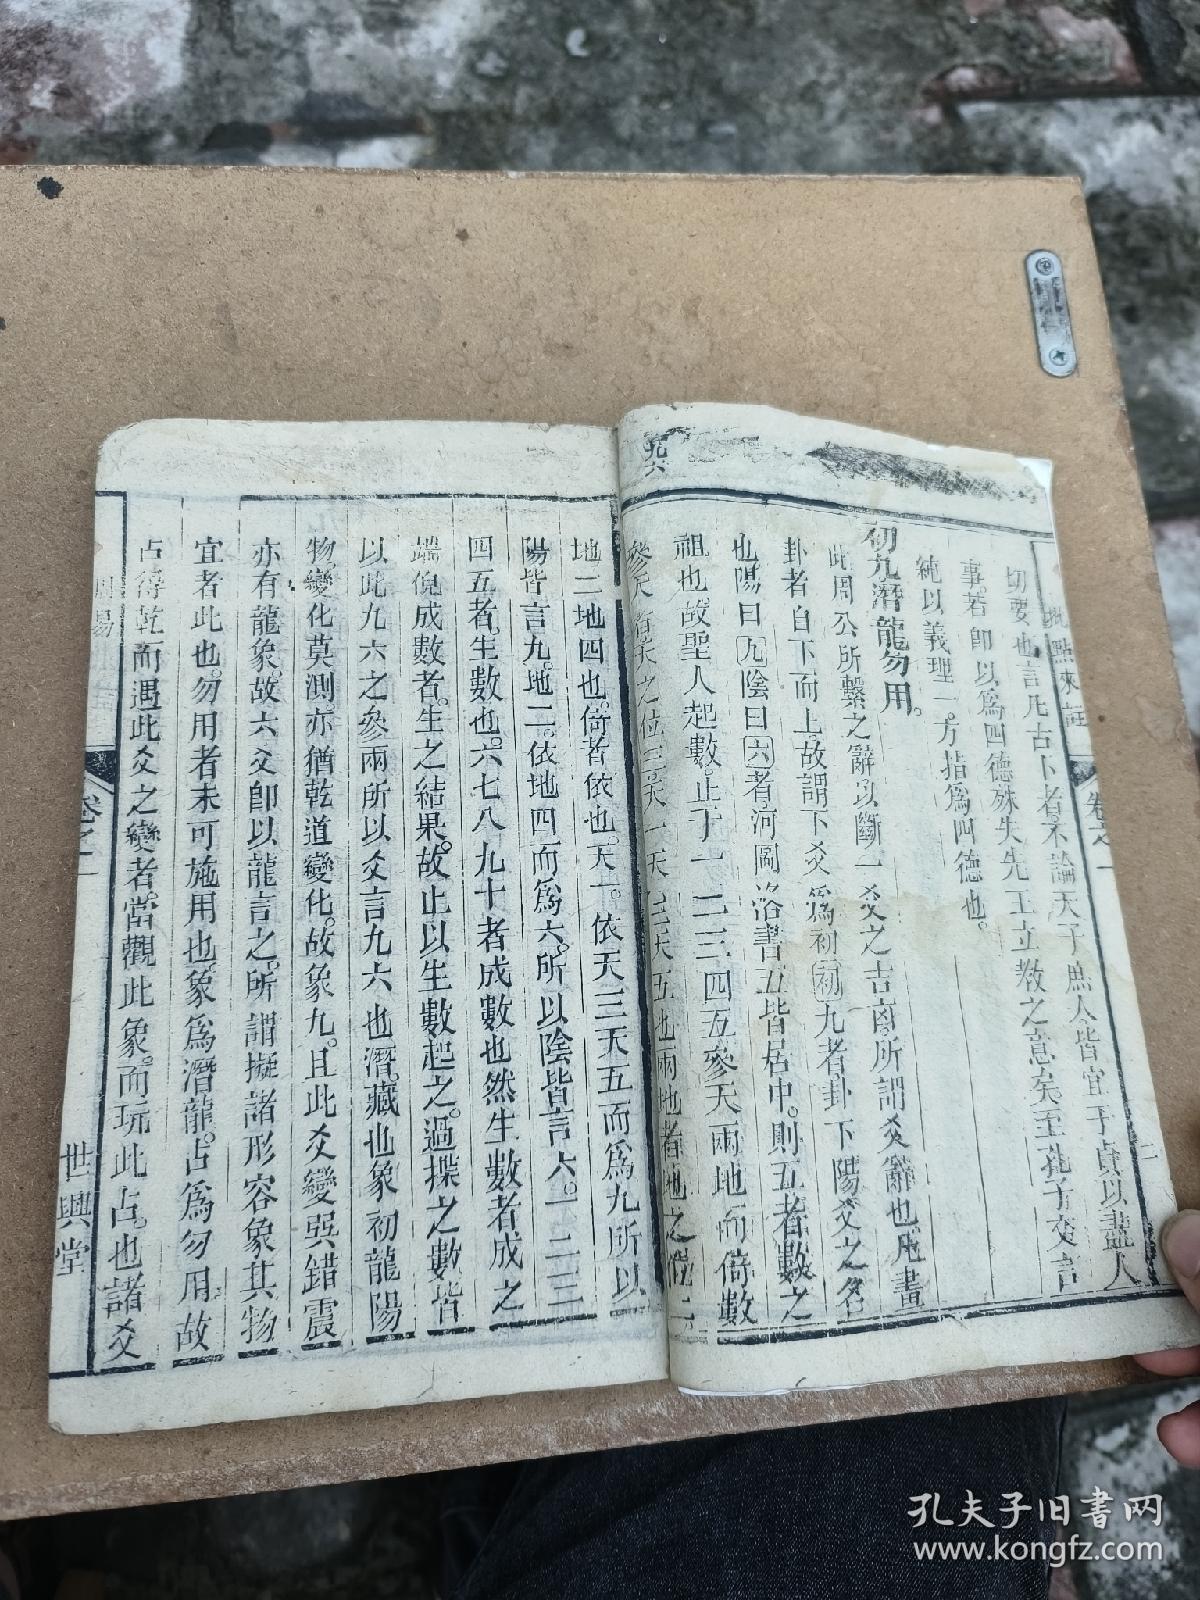 九六
批點來註
卷之一
切要也言凡古卜者不論天子庶人皆宜于貞以盡人
事若卽以爲四德殊失先王立教之意矣至孔子交言
純以義理一方指爲四德也
初九潛龍勿用
此周公所繫之辭以斷一爻之吉凶所謂爻辭也凡畫
卦者自下而上故謂下爻爲初初九者卦下陽爻之名
也陽曰九陰曰六者河圖洛書五皆居中則五者數之
祖也故聖人起數止于一二三四五參天兩地而倚數
參天者天之位三天一天三天五也兩地者地之位二
地二地四也倚者依也天一依天三天五而爲九所以
陽皆言九地二依地四而爲六所以陰皆言六一二三
四五者生數也六七八九十者成數也然生數者成之
端倪成數者生之結果故止以生數起之過揲之數皆
以此九六之參兩所以爻言九六也潛藏也象初龍陽
物變化莫測亦猶乾道變化故象九且此爻變巽錯震
亦有龍象故六爻卽以龍言之所謂擬諸形容象其物
宜者此也勿用者未可施用也象爲潛龍占爲勿用故
占得乾而遇此爻之變者當觀此象而玩此占也諸爻
周易
卷之一
世興堂
孔夫子旧书网
www.kongfz.com